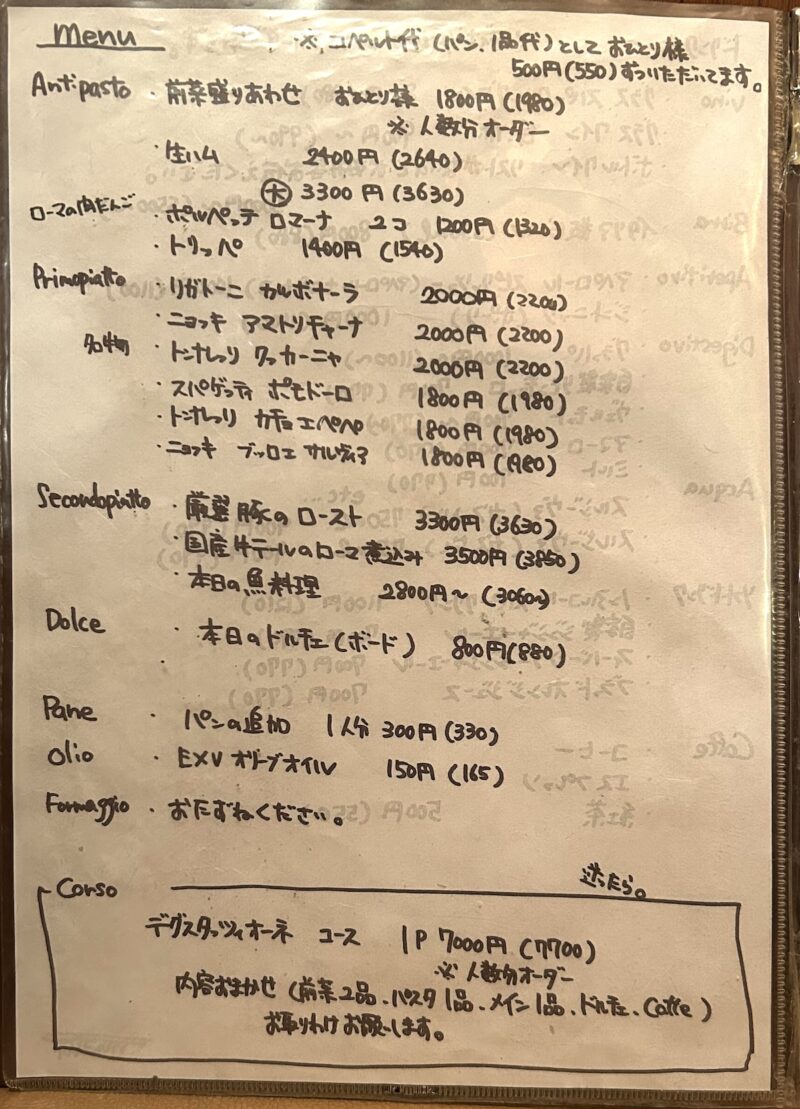 Menu
※ コペルト代 (パン、1品代) として おひとり様
500円(550)ずついただいてます。
Antipasto ・前菜盛りあわせ おひとり様 1800円(1980)
※ 人数分オーダー
・生ハム 2400円(2640)
大 3300円(3630)
ローマの肉だんご ・ポルペッテ ロマーナ 2コ 1200円(1320)
・トリッパ 1400円(1540)
Primopiatto ・リガトーニ カルボナーラ 2000円(2200)
・ニョッキ アマトリチャーナ 2000円(2200)
名物 ・トンナレッリ クッカーニャ 2000円(2200)
・スパゲッティ ポモドーロ 1800円(1980)
・トンナレッリ カチョエペペ 1800円(1980)
・ニョッキ ブッロエサルヴィア 1800円(1980)
Secondopiatto ・厳選豚のロースト 3300円(3630)
・国産牛テールのローマ煮込み 3500円(3850)
・本日の魚料理 2800円〜(3060〜)
Dolce ・本日のドルチェ(ボード) 800円(880)
・
Pane ・パンの追加 1人分 300円(330)
Olio ・EXV オリーブオイル 150円(165)
Formaggio ・おたずねください。
迷ったら。
Corso
デグスタッツィオーネ コース 1P 7000円(7700)
※ 人数分オーダー
内容おまかせ(前菜2品、パスタ1品、メイン1品、ドルチェ、Caffe)
お取りわけお願いします。